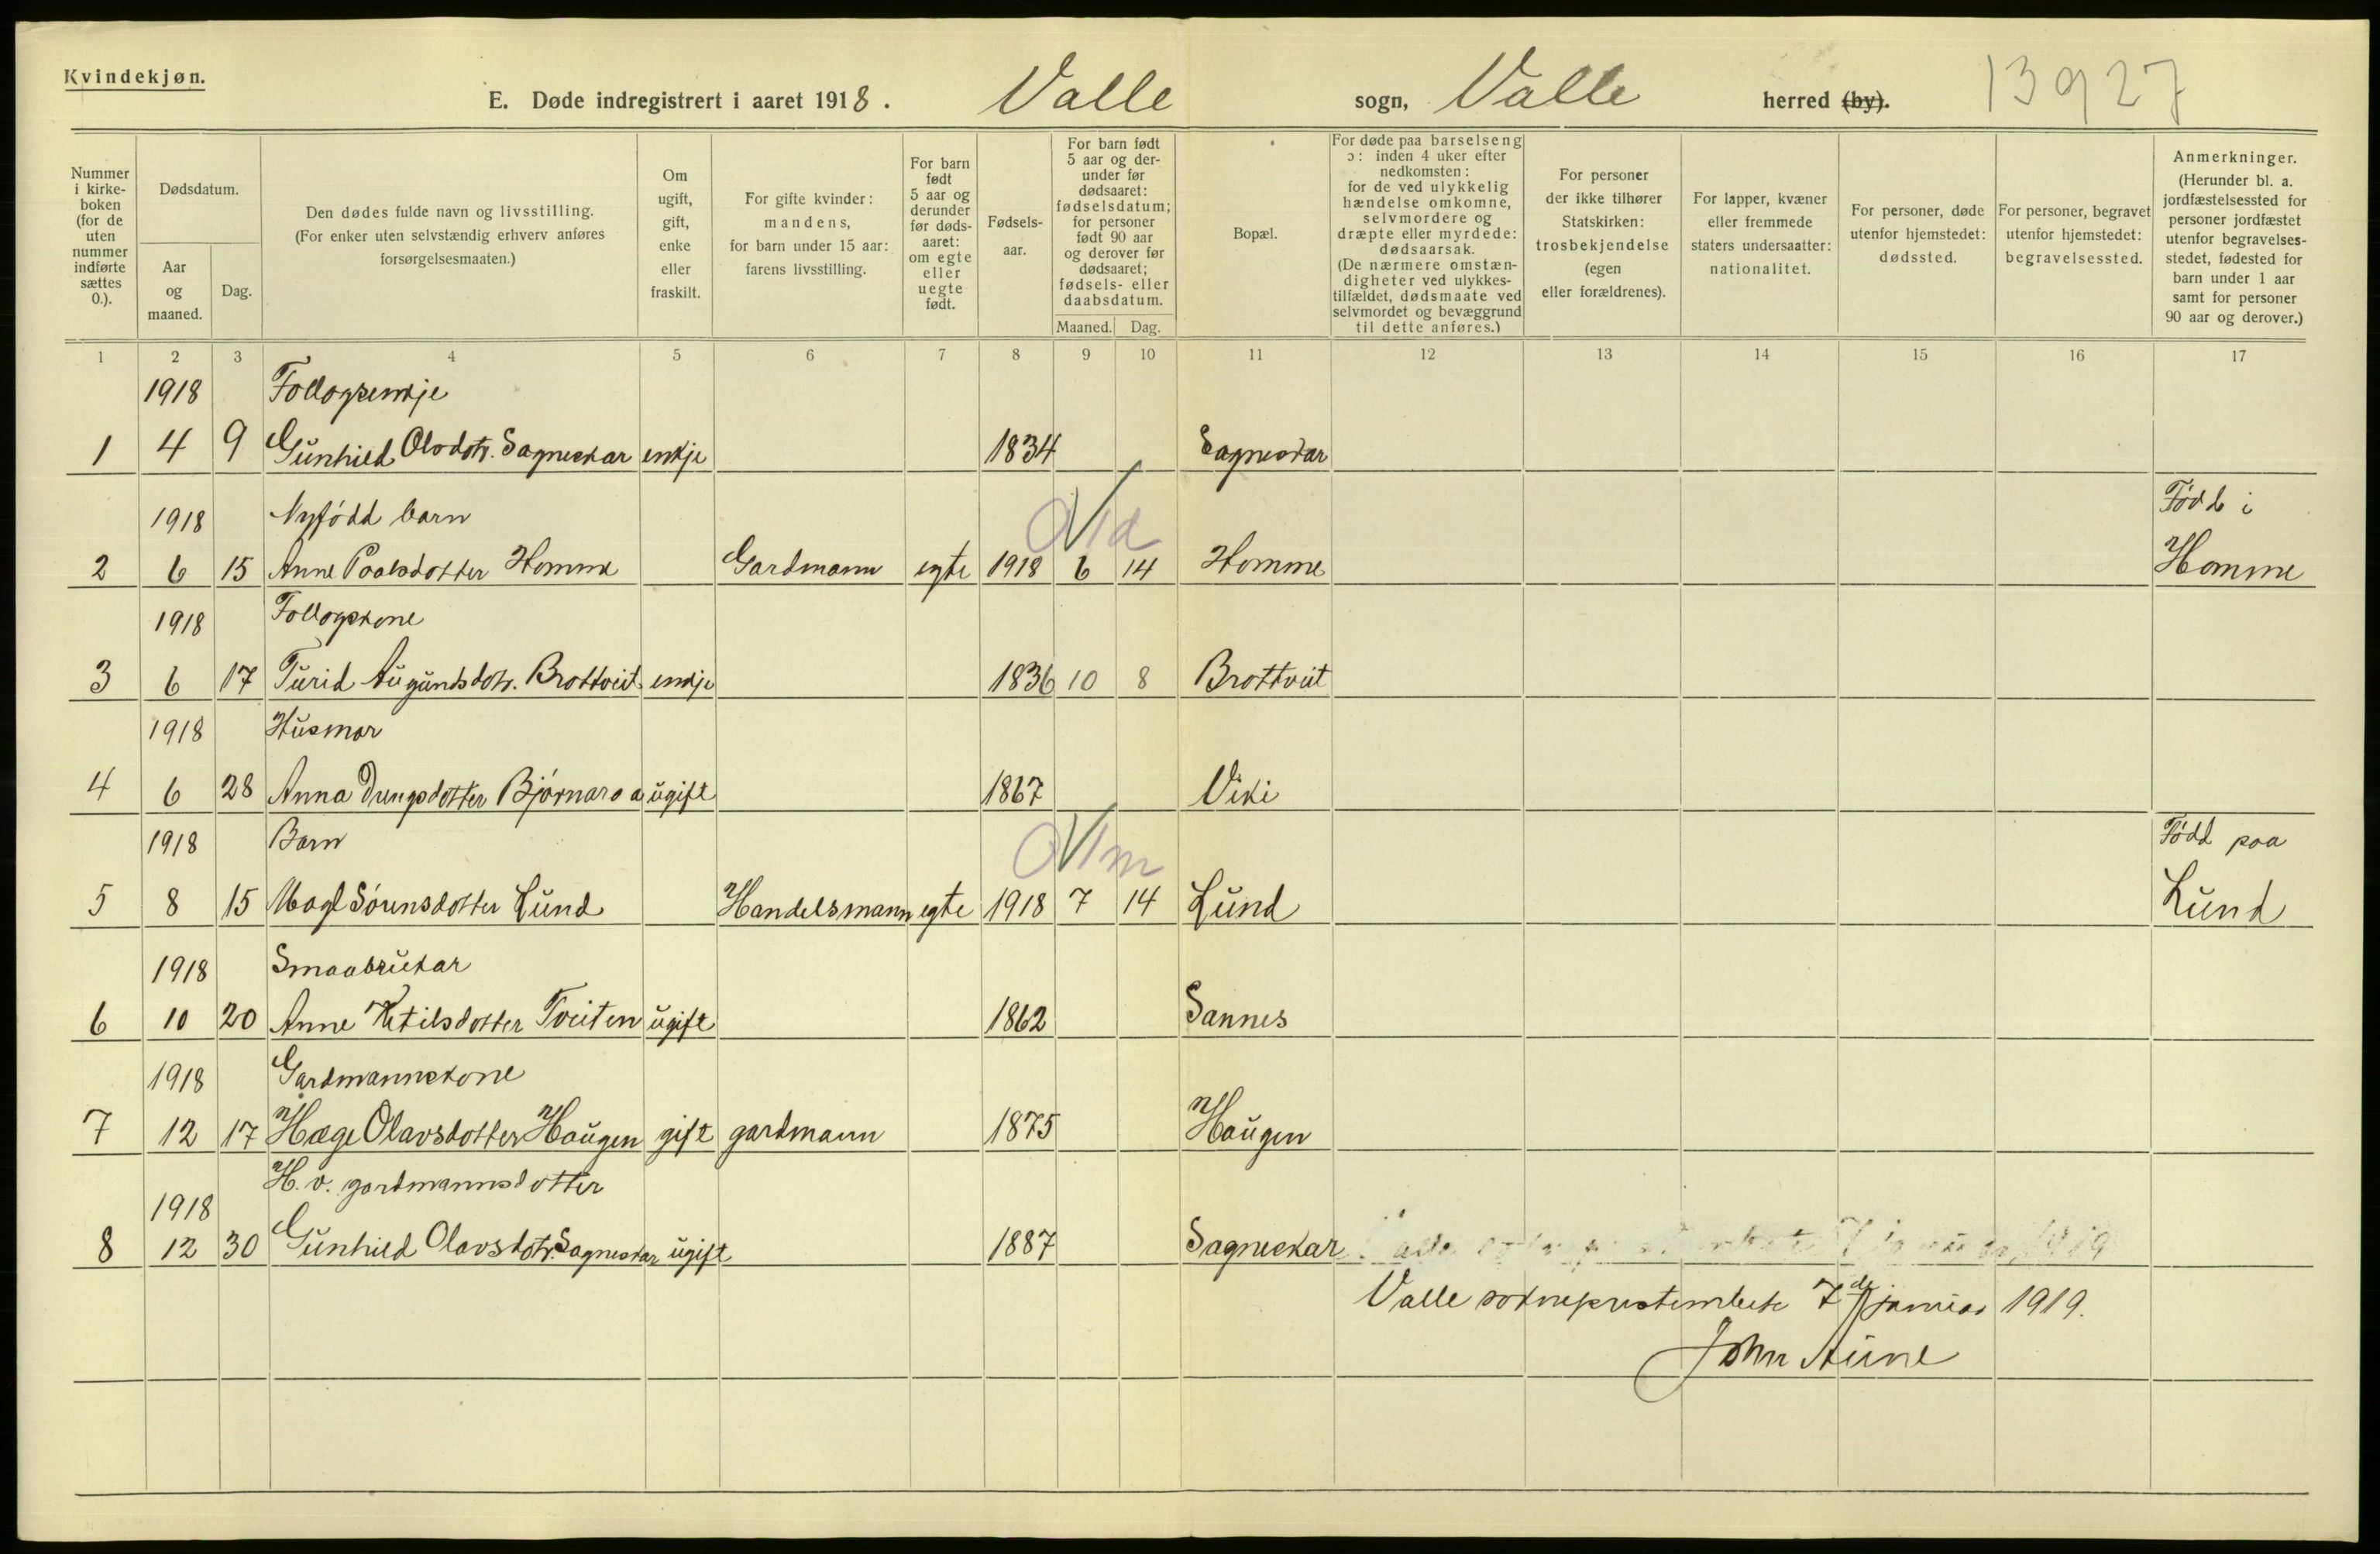 Kvindekjøn.
E. Døde indregistrert i aaret 1918. Valle sogn, Valle herred (by). 13927
Nummer i kirkeboken (for de uten nummer indførte sættes 0.).
Dødsdatum.
Aar og maaned.
Dag.
Den dødes fulde navn og livsstilling.
(For enker uten selvstændig erhverv anføres forsørgelsesmaaten.)
Om ugift, gift, enke eller fraskilt.
For gifte kvinder: mandens, for barn under 15 aar: farens livsstilling.
For barn født 5 aar og derunder før dødsaaret: om egte eller uegte født.
Fødselsaar.
For barn født 5 aar og derunder før dødsaaret: fødselsdatum; for personer født 90 aar og derover før dødsaaret; fødsels- eller daabsdatum.
Maaned. Dag.
Bopæl.
For døde paa barselseng ɔ: inden 4 uker efter nedkomsten: for de ved ulykkelig hændelse omkomne, selvmordere og dræpte eller myrdede: dødsaarsak. (De nærmere omstændigheter ved ulykkestilfældet, dødsmaate ved selvmordet og bevæggrund til dette anføres.)
For personer der ikke tilhører Statskirken: trosbekjendelse (egen eller forældrenes).
For lapper, kvæner eller fremmede staters undersaatter: nationalitet.
For personer, døde utenfor hjemstedet: dødssted.
For personer, begravet utenfor hjemstedet: begravelsessted.
Anmerkninger. (Herunder bl. a. jordfæstelsessted for personer jordfæstet utenfor begravelsesstedet, fødested for barn under 1 aar samt for personer 90 aar og derover.)
1 2 3 4 5 6 7 8 9 10 11 12 13 14 15 16 17
1918 Follogsenkje
1 4 9 Gunhild Olsdotr. Sagneskar enkje 1834 Sagneskar
1918 Nyfödd barn 1d Född i
2 6 15 Anne Paalsdotter Homme Gardmann egte 1918 6 14 Homme Homme
1918 Follogskone
3 6 17 Turid Augundsdotr. Brottveit enkje 1836 10 8 Brottveit
1918 Husmor
4 6 28 Anna Dungsdotter Björnaraa ugift 1867 Viki
1918 Barn 1m Född paa
5 8 15 Sörensdotter Lund Handelsmann egte 1918 7 14 Lund Lund
1918 Smaabrukar
6 10 20 Anne Ketilsdotter Tveiten ugift 1862 Sannes
1918 Gardmannskone
7 12 17 Hæge Olavsdotter Haugen gift gardmann 1875 Haugen
1918 H. v. gardmannsdotter
8 12 30 Gunhild Olavsdotr. Sagneskar ugift 1887 Sagneskar
Valle sokneprestembete 7de januar 1919.
John Aune